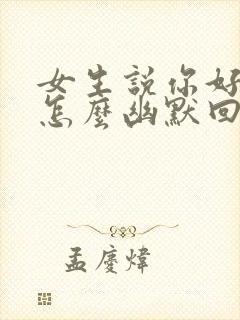 女生説你好
怎麼幽默回
孟慶煒